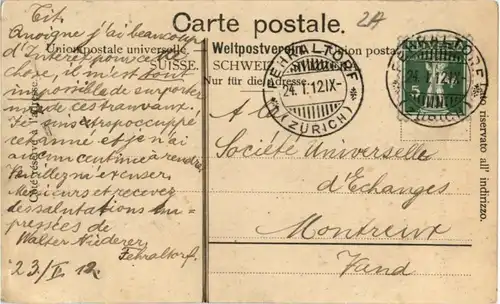 Carte postale.
2A
Union postale universelle. Weltpostverein. Union postale
SUISSE. SCHWEIZ.
Nur für die Adresse.
Côté réservé à l'adresse.
Lato riservato all' indirizzo.
FEHRALTORF
24.I.12.IX-
(ZÜRICH)
FEHRALTORF
24.I.12.IX-
(ZÜRICH)
5
Tit.
j'ai beaucoup
d'Interêt pour cette
chose, il m'est tout
impossible de supporter
de ces travaux.
Je suis trop occuppé
et je n'ai
aucun à rendre.
Veuillez m'excuser
Messieurs et recevez
des salutations em-
pressées de
Walter Niederer,
Fehraltorf.
23/I 12.
A la
Société Universelle
d'Echanges
Montreux
Vaud